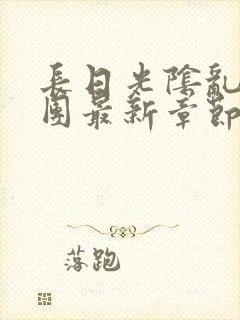 長日光陰亂
團最新章節
落跑